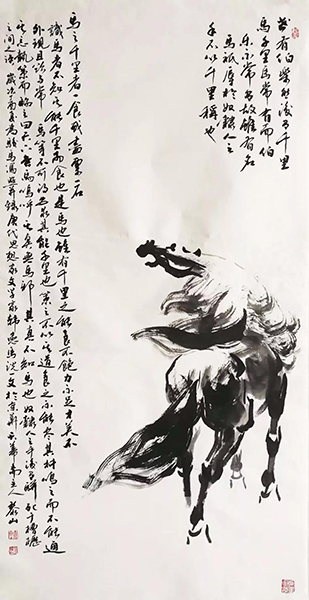 世有伯樂然後有千里
馬千里馬常有而伯
樂不常有故雖有名
馬祇辱於奴隸人之
手不以千里稱也
馬之千里者一食或盡粟一石
識馬者不知其能千里而食也是馬也雖有千里之能食不飽力不足才美不
外現且欲与常馬等不可得安求其能千里也策之不以其道食之不能盡其材鳴之而不能通
其意執策而臨之曰天下無馬嗚呼其真無馬邪其真不知馬也奴隸人之手駢死于槽櫪
之間之語歲次唐代思想家文學家韓愈馬說一文於京華主人山